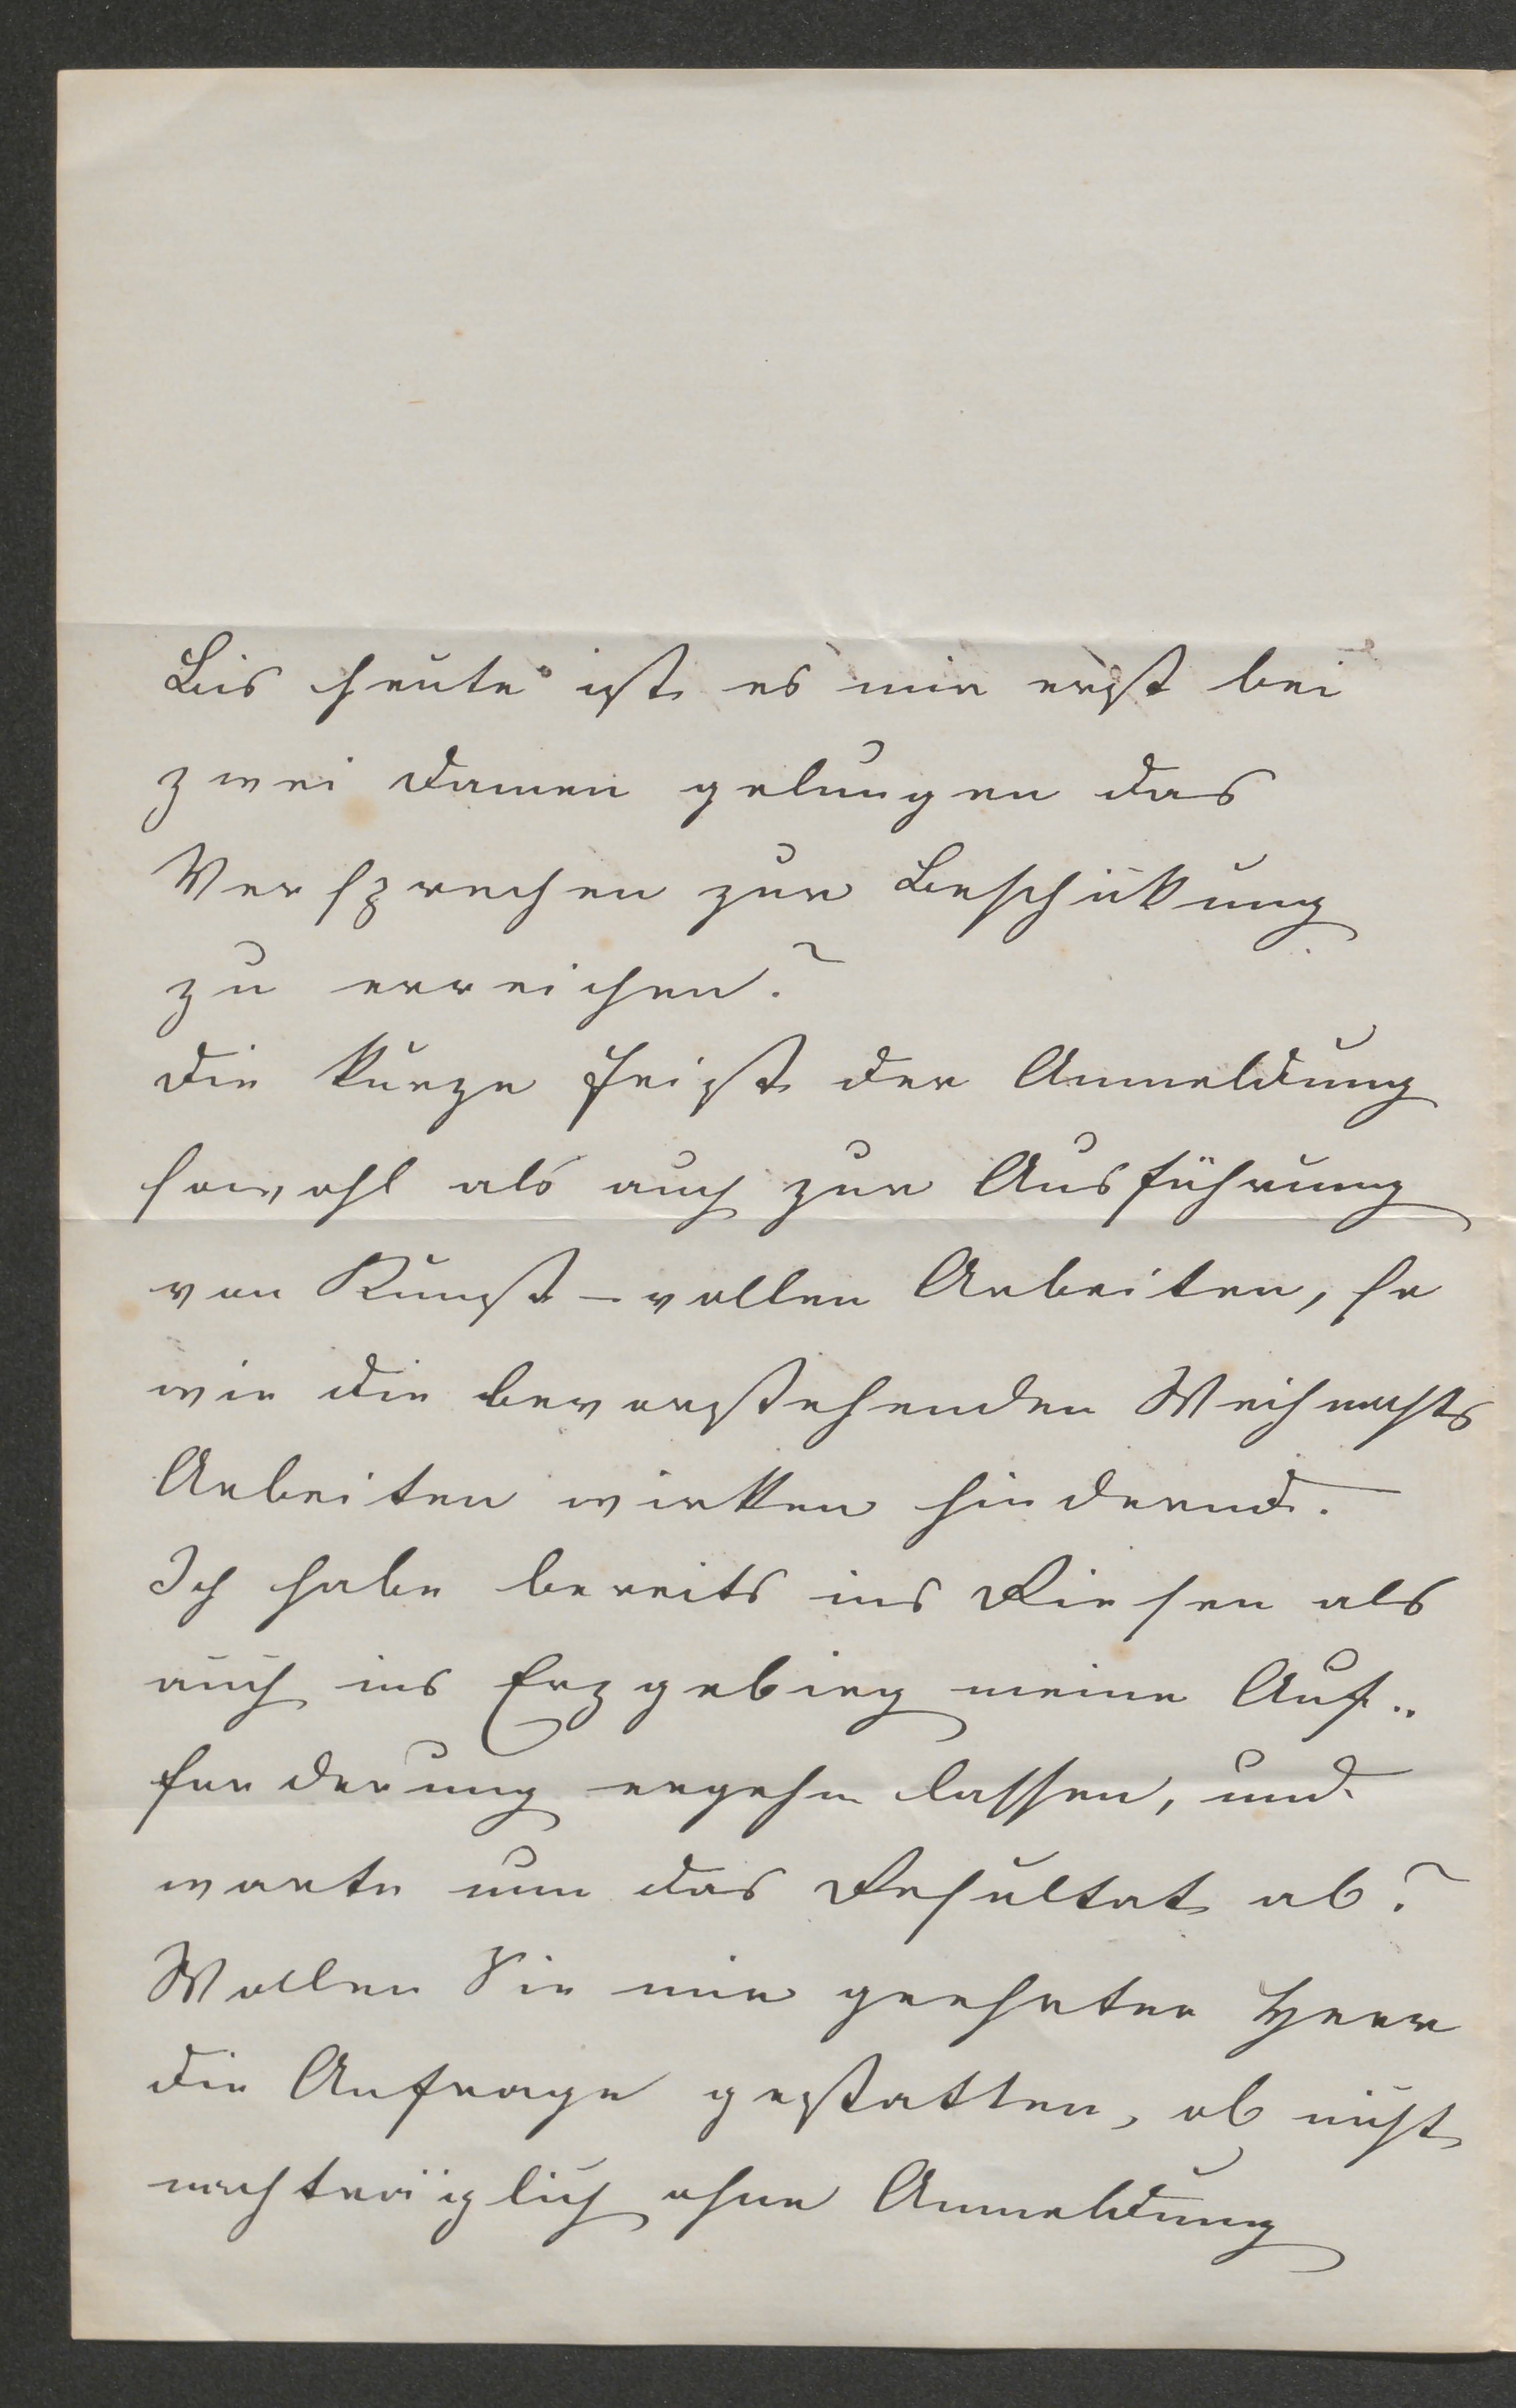 Bis heute ist es mir erst bei
zwei Damen gelungen das
Versprechen zur Beschikung
zu erreichen?
Die kurze Frist der Anmeldung
sowohl als auch zur Ausführung
von Kunst-vollen Arbeiten, so
wie die bevorstehenden Weihnachts
Arbeiten wirken hindernd.
Ich habe bereits ins Riesen als
auch ins Erzgebirg meine Auf-
forderung ergehn lassen, und
warte nun das Resultat ab?
Wollen Sie mir geehrter Herr
die Anfrage gestatten, ob nicht
nachträglich ohne Anmeldung